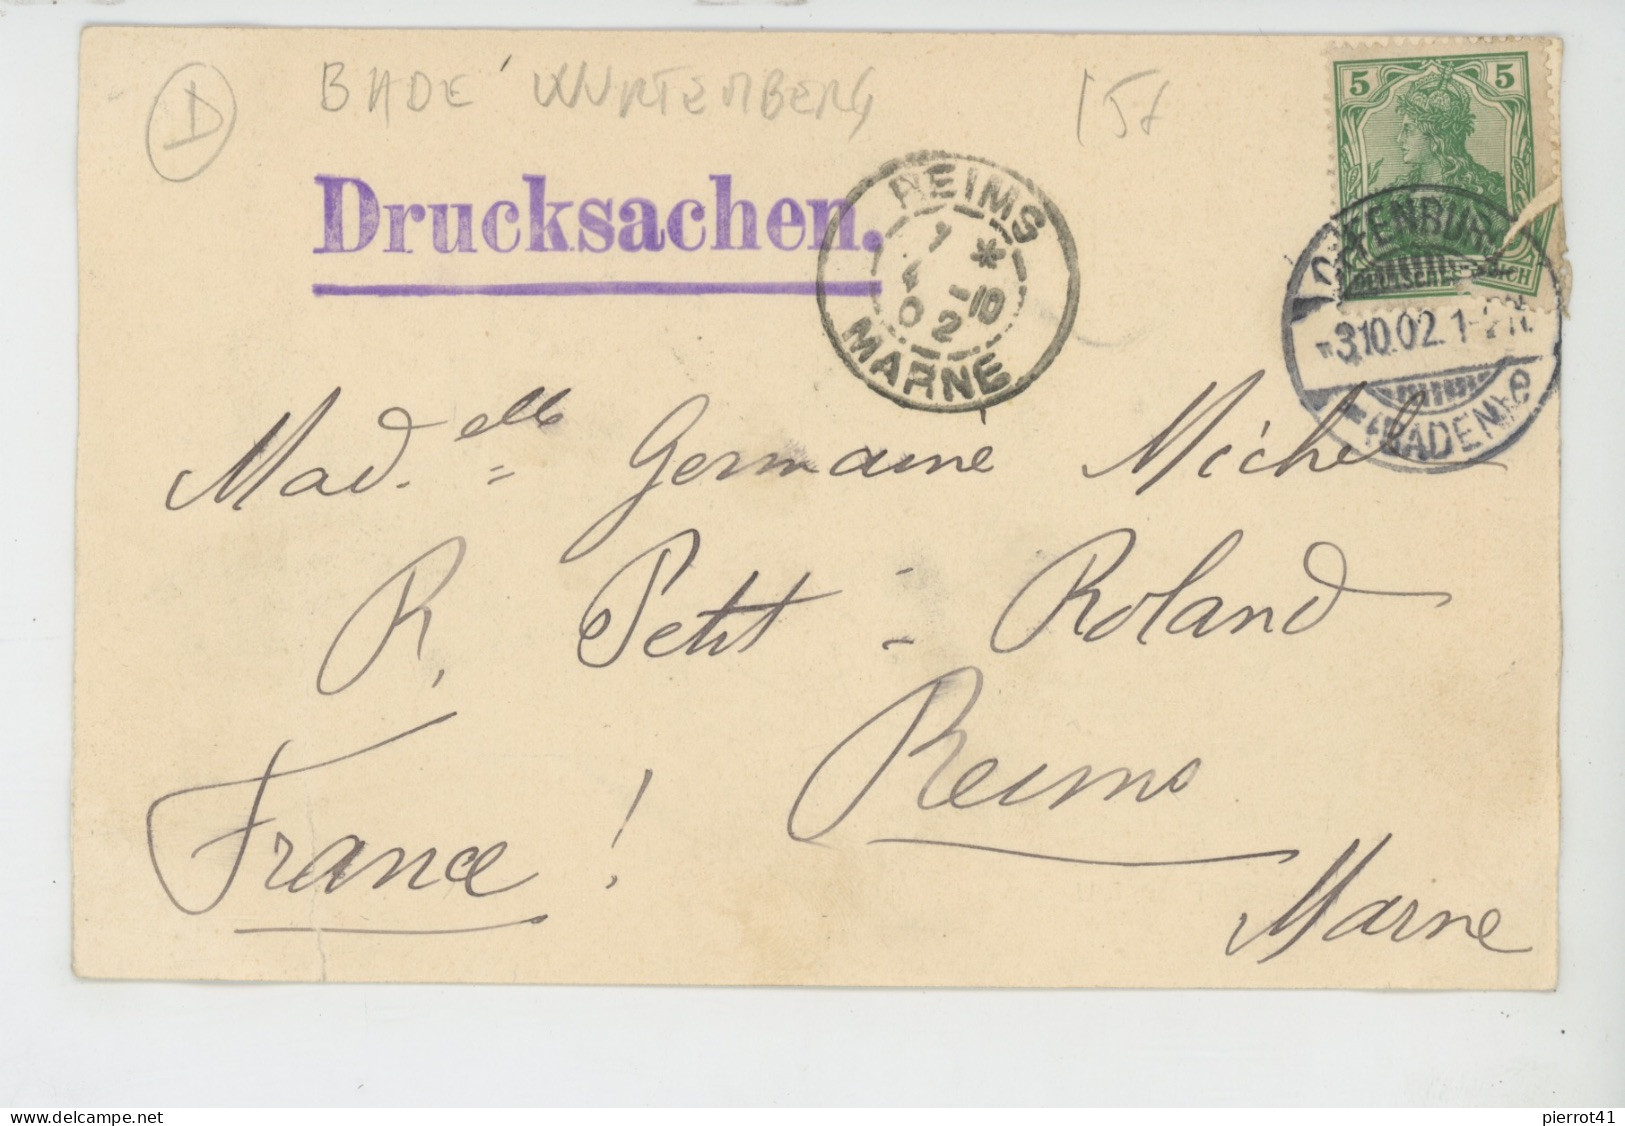 D
BADE WURTEMBERG
5 5
DEUTSCHES REICH
Drucksachen.
REIMS
4 -10
02
MARNE
OFFENBURG
*3.10.02.1-2N.
(BADEN) * e
Mad.elle Germaine Michel
R. Petit - Roland
Reims
France !
Marne
www.delcampe.net
pierrot41